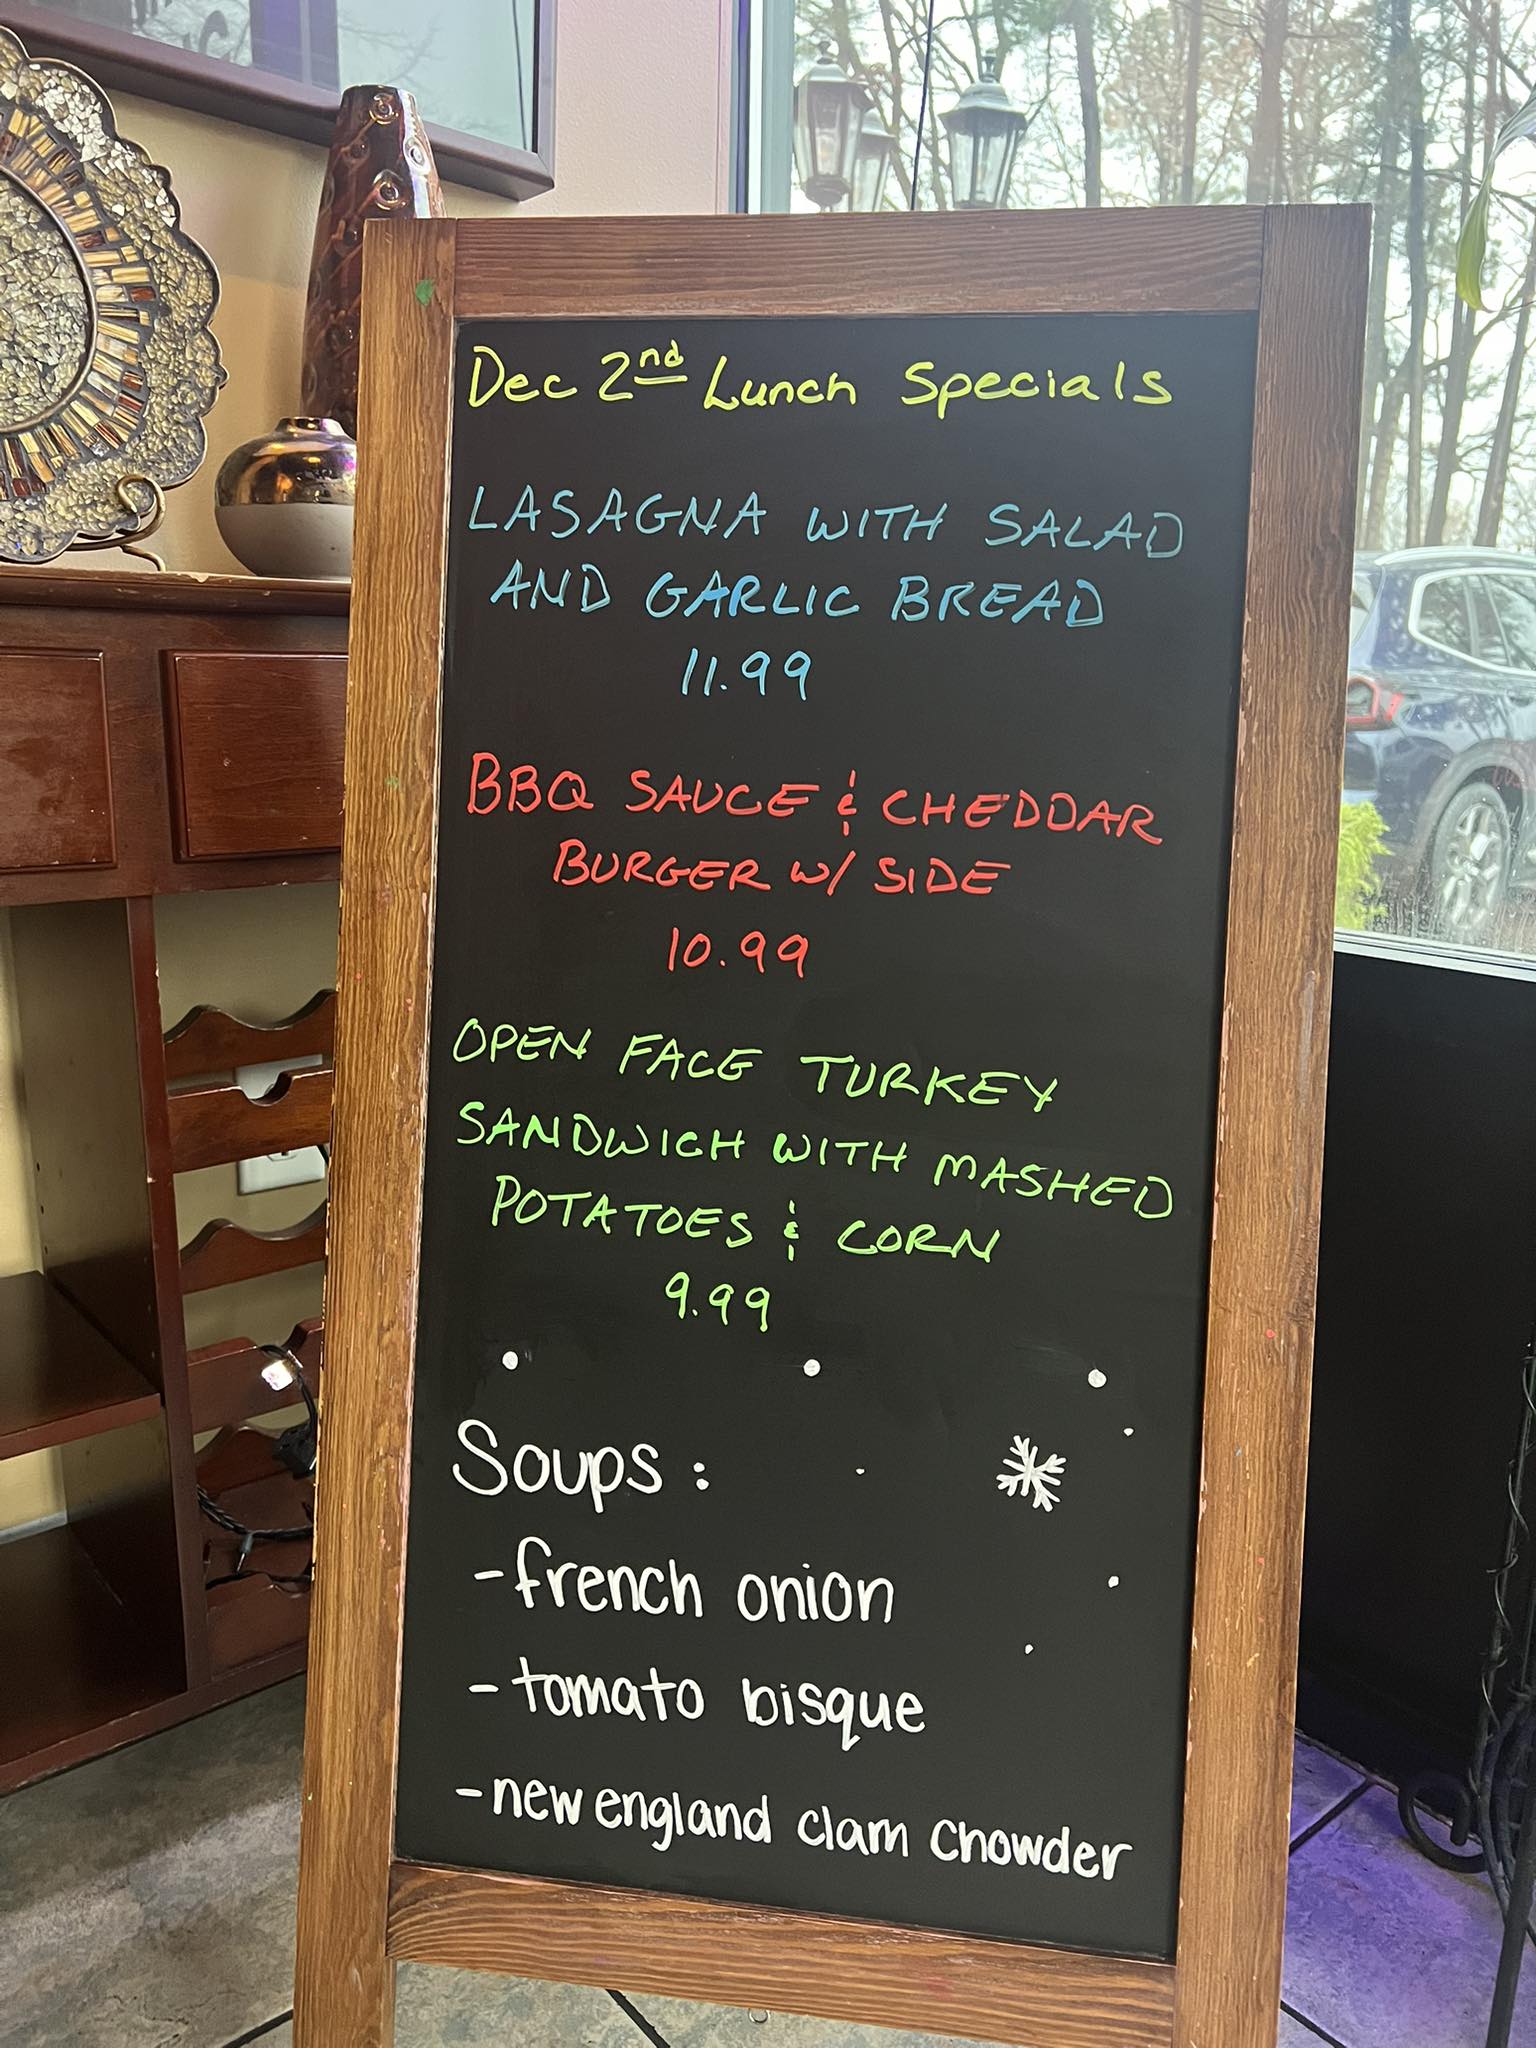 Dec 2nd Lunch Specials
LASAGNA WITH SALAD
AND GARLIC BREAD
11.99
BBQ SAUCE & CHEDDAR
BURGER W/ SIDE
10.99
OPEN FACE TURKEY
SANDWICH WITH MASHED
POTATOES & CORN
9.99
Soups:
-french onion
-tomato bisque
-new england clam chowder